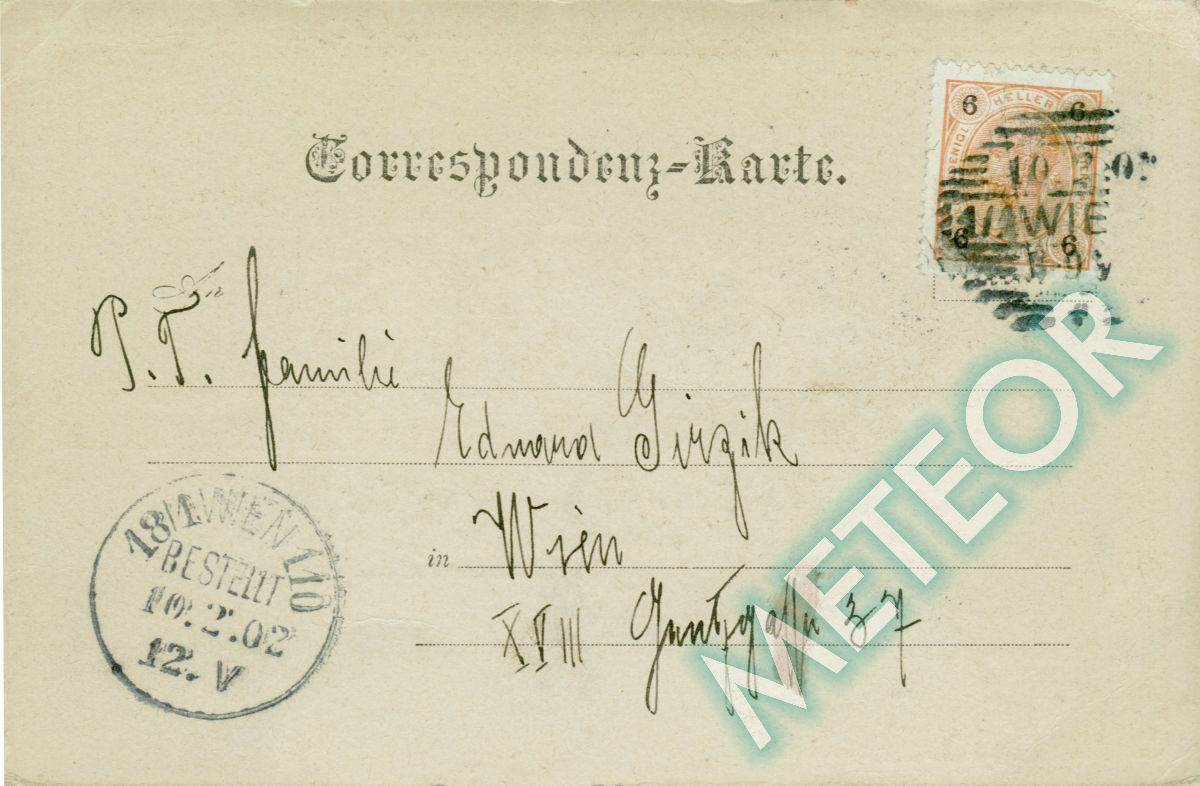 Correspondenz-Karte.
6 HELLER 6
10
1/1 WIE
6 6
An
P. T. Familie
Eduard Girzik
in Wien
XVIII Gentzgasse 37
18/1 WIEN 110
BESTELLT
10.2.02
12.V
METEOR